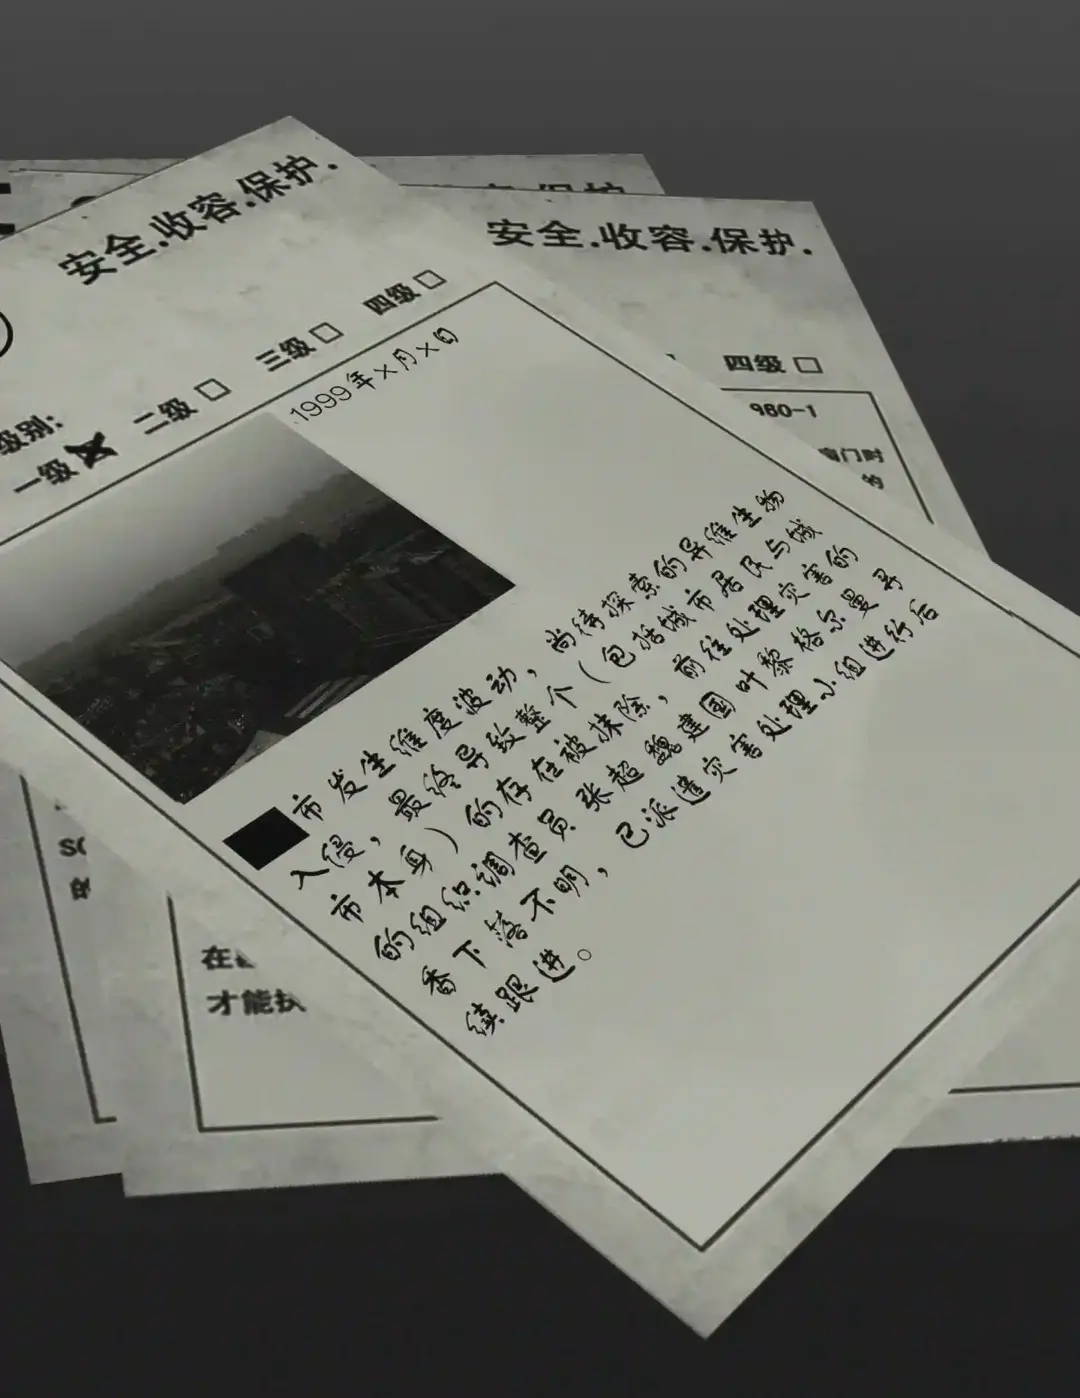 安全.收容.保护.
级别:
一级 二级 三级 四级
1999年×月×日
市发生维度波动，尚待探索的异维生物
入侵，最终导致整个（包括城市居民与城
市本身）的存在被抹除，前往处理灾害的
的组织调查员张超魏建国叶黎格尔曼寻
番下落不明，已派遣灾害处理小组进行后
续跟进。
安全.收容.保护.
四级
960-1
门时
的
保护
在
才能执